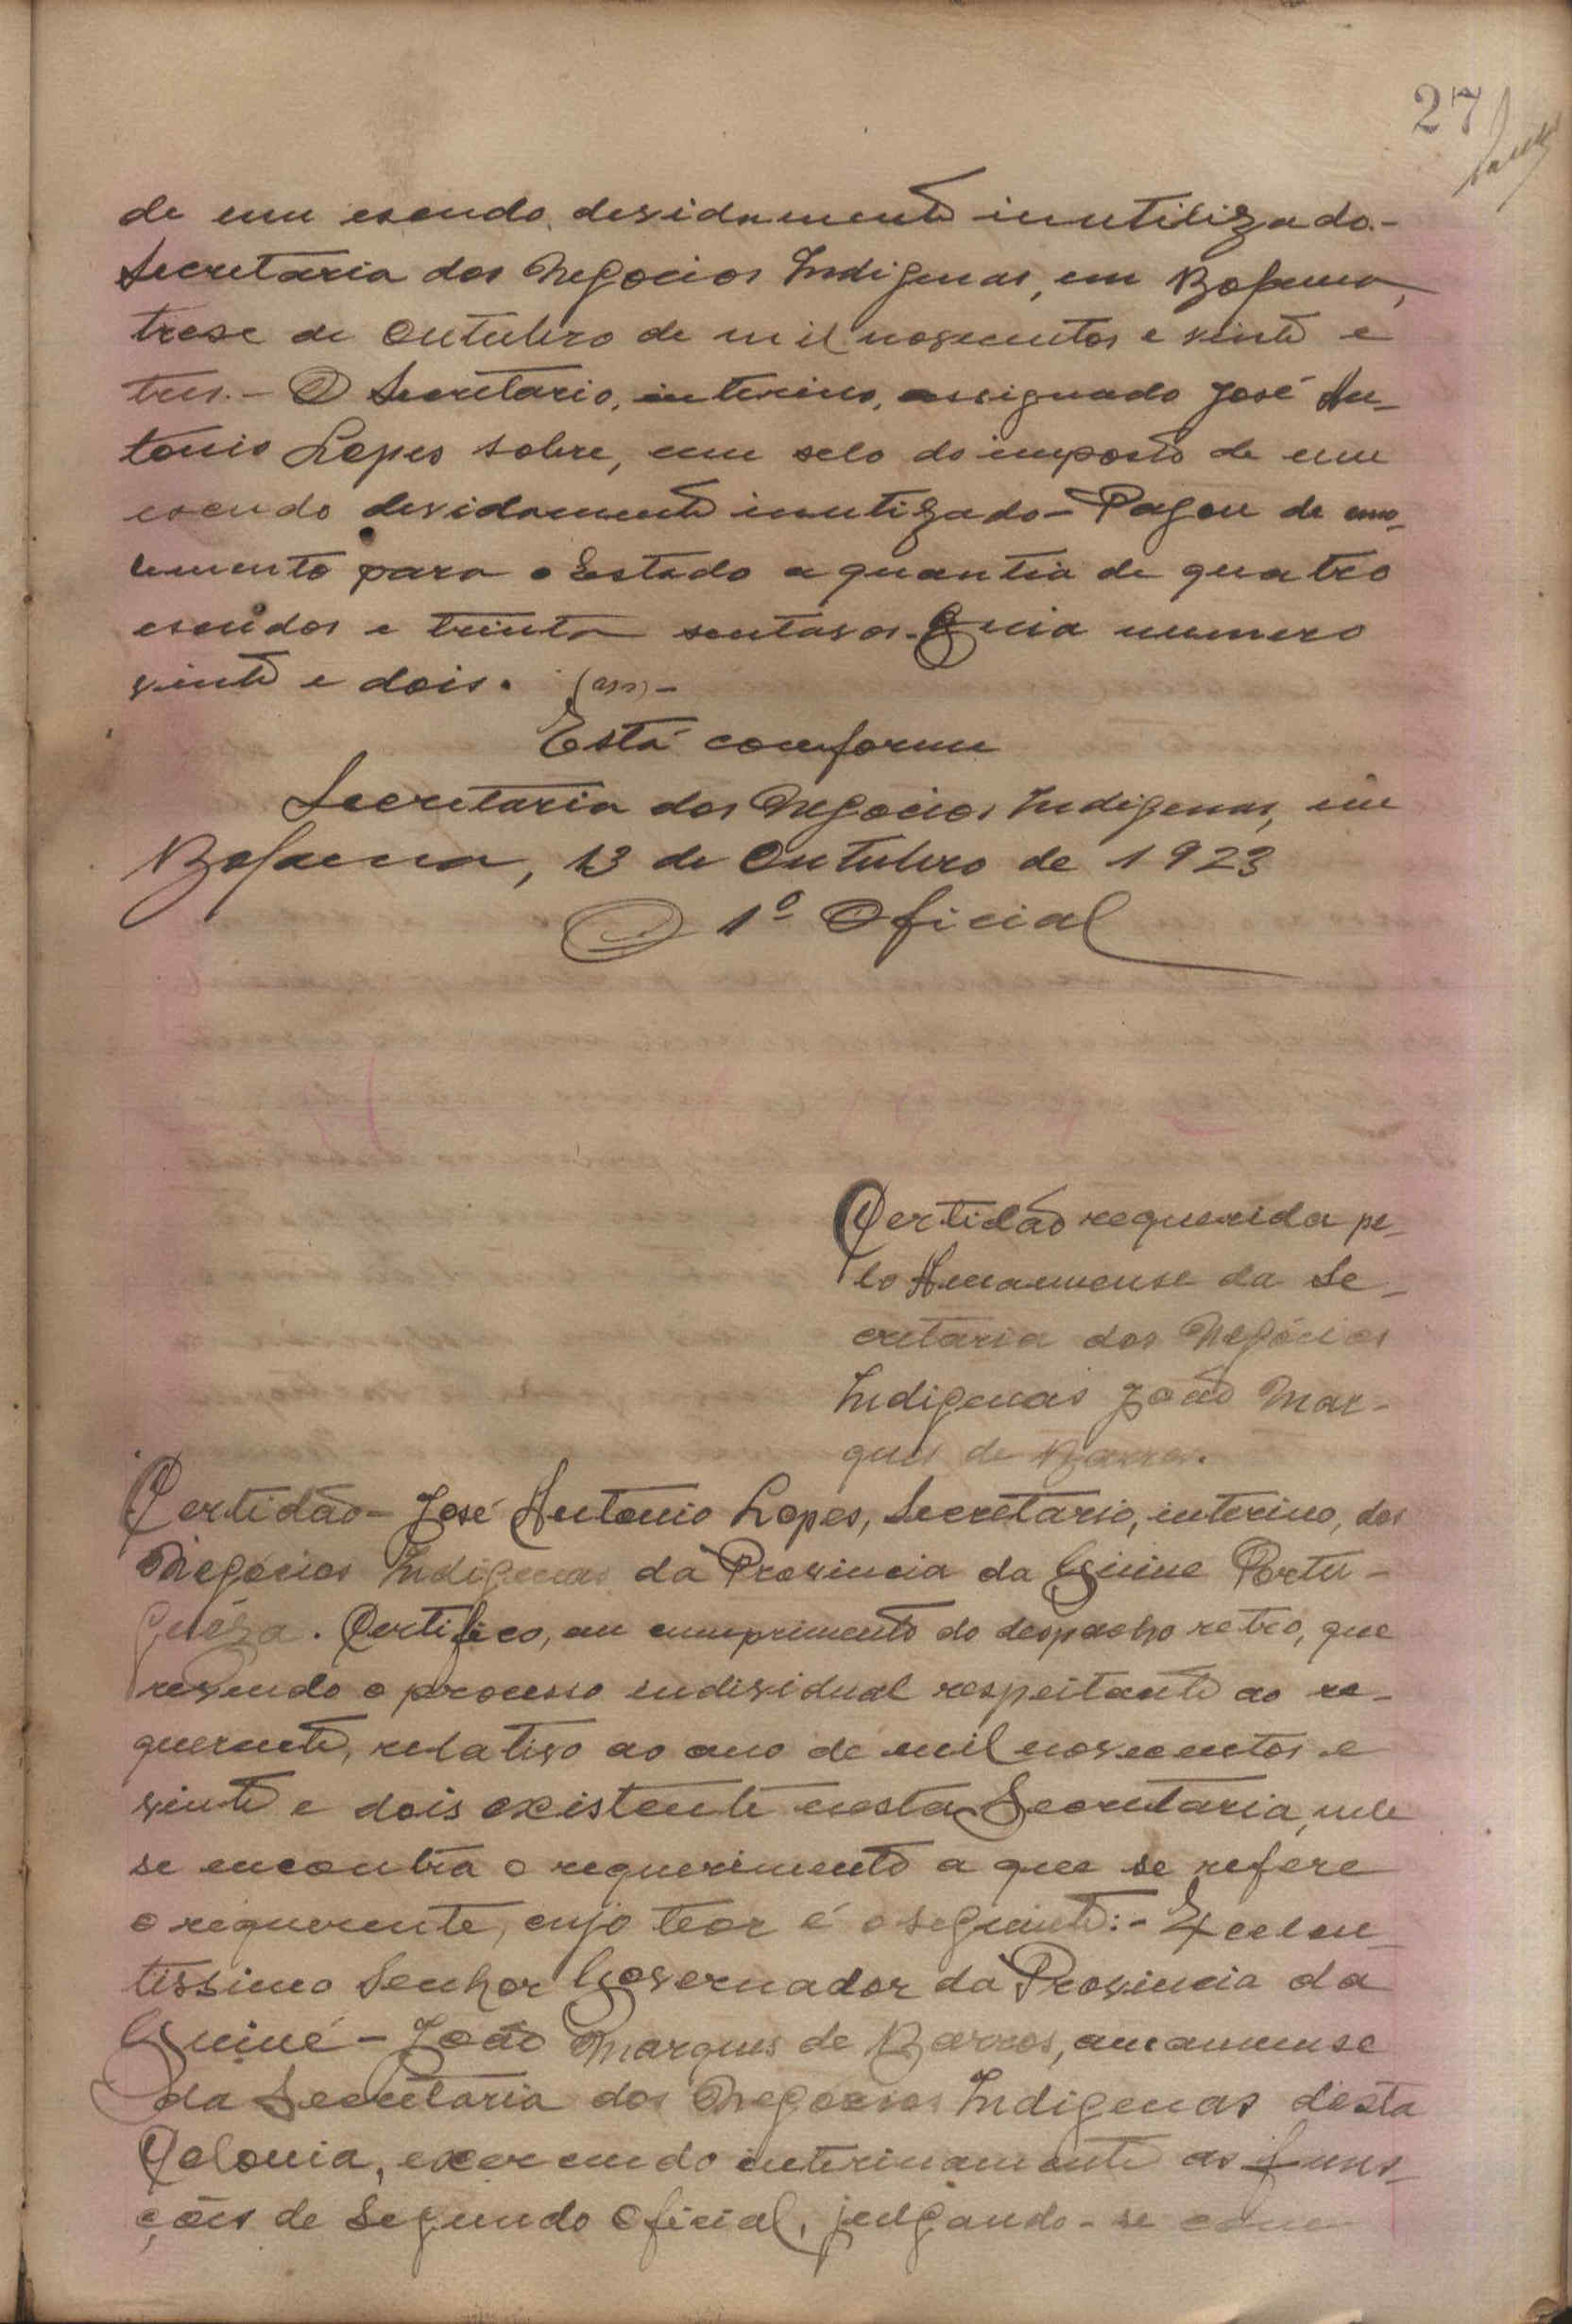 27
de um escudo, devidamente inutilizado.-
Secretaria dos Negocios Indigenas, em Bolama,
trese de Outubro de mil novecentos e vinte e
tres.- O Secretario, interino, assignado José An-
tonio Lopes sobre, um selo do imposto de um
escudo devidamente inutizado - Pagou de emo-
lumento para o Estado a quantia de quatro
escudos e trinta sentavos. Guia numero
vinte e dois. (ass) -
Está comforme
Secretaria dos Negocios Indigenas, em
Bolama, 13 de Outubro de 1923
O 1º Oficial
Certidão requerida pe-
lo Amanuense da Se-
cretaria dos Negócios
Indigenas João Mar-
ques de Barros.
Certidão - José Antonio Lopes, Secretario, interino, dos
Negócios Indigenas da Provincia da Guine Portu-
guêza. Certifico, em cumprimento do despacho retro, que
revendo o processo individual respeitante ao re-
querente, relativo ao ano de mil novecentos e
vinte e dois existente nesta Secretaria, nele
se encontra o requerimento a que se refere
o requerente, cujo teor é o seguinte:- Excelen-
tissimo Senhor Governador da Provincia da
Guiné - João Marques de Barros, amanuense
da Secretaria dos Negócios Indigenas desta
Colonia, exercendo interinamente as func-
ções de Segundo Oficial, julgando-se com